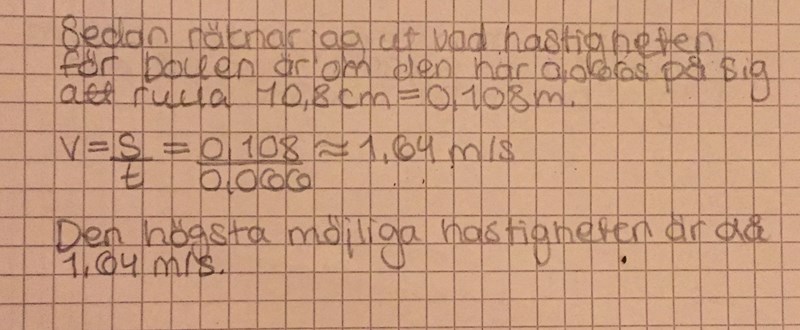 Sedan räknar jag ut vad hastigheten
för bollen är om den har 0,066s på sig
att rulla 10,8 cm = 0,108 m.
V = S/t = 0,108/0,066 ≈ 1,64 m/s
Den högsta möjliga hastigheten är då
1,64 m/s.